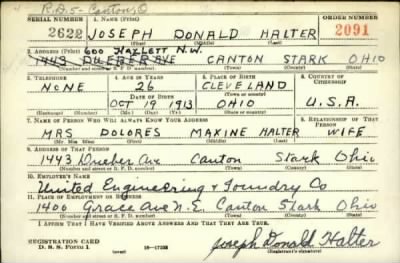 R.D.5- Canton, O
SERIAL NUMBER 1. NAME (Print) ORDER NUMBER
2622 JOSEPH DONALD HALTER 2091
(First) (Middle) (Last)
2. ADDRESS (Print) 600 HAZLETT N.W.
1443 DUEBER AVE CANTON STARK OHIO
(Number and street or R. F. D. number) (Town) (County) (State)
3. TELEPHONE 4. AGE IN YEARS 5. PLACE OF BIRTH 6. COUNTRY OF CITIZENSHIP
NONE 26 CLEVELAND
DATE OF BIRTH (Town or county)
OCT 19 1913 OHIO U.S.A.
(Mo.) (Day) (Yr.) (State or country)
7. NAME OF PERSON WHO WILL ALWAYS KNOW YOUR ADDRESS 8. RELATIONSHIP OF THAT PERSON
MRS DOLORES MAXINE HALTER WIFE
(Mr., Mrs., Miss) (First) (Middle) (Last)
9. ADDRESS OF THAT PERSON
1443 Dueber Av. Canton Stark Ohio
(Number and street or R. F. D. number) (Town) (County) (State)
10. EMPLOYER'S NAME
United Engineering & Foundry Co
11. PLACE OF EMPLOYMENT OR BUSINESS
1400 Grace Ave N.E. Canton Stark Ohio
(Number and street or R. F. D. number) (Town) (County) (State)
I AFFIRM THAT I HAVE VERIFIED ABOVE ANSWERS AND THAT THEY ARE TRUE.
REGISTRATION CARD
D. S. S. FORM 1 16-17105 Joseph Donald Halter
(Registrant's signature)